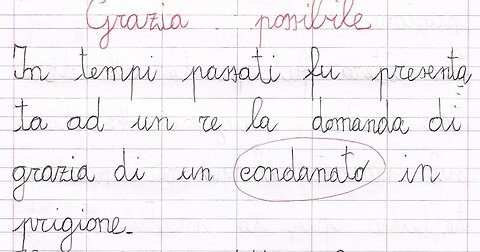 Grazia possibile
In tempi passati fu presenta
ta ad un re la domanda di
grazia di un condanato in
prigione.